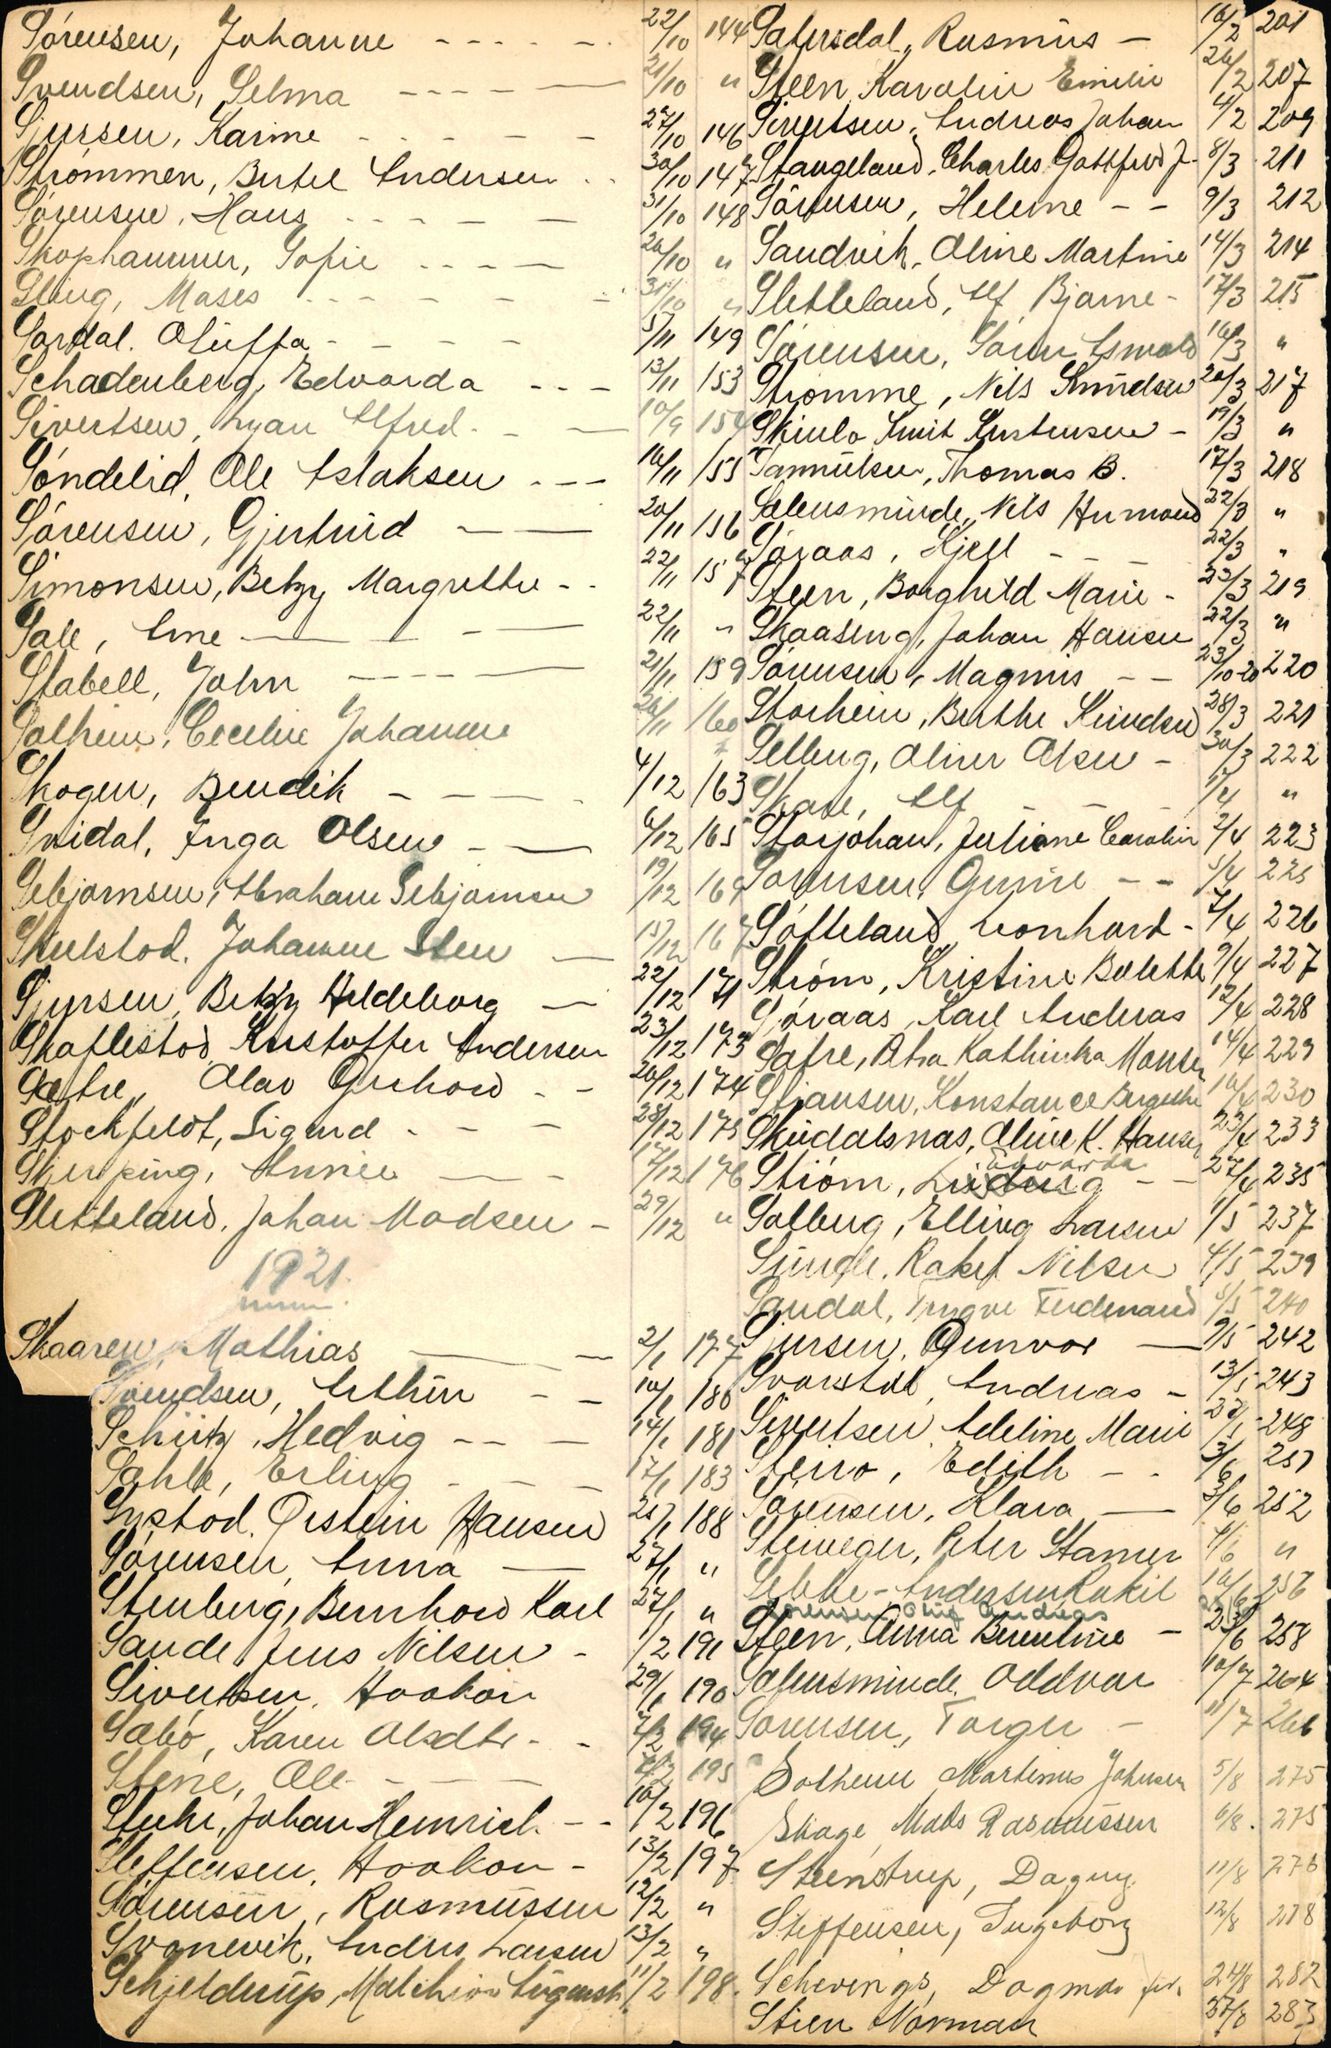 Sörensen, Johanne 22/10 144
Svendsen, Selma 21/10 "
Sjursen, Karine 27/10 146
Strömmen, Bertel Andersen 30/10 147
Sörensen, Hans 31/10 148
Skophammer, Sofie 26/10 "
Steug, Moses 31/10 "
Sordal. Oluffa 5/11 149
Schadenberg, Edvarda 13/11 153
Sivertsen, Alfred 10/9 154
Söndelid, Ole Aslaksen 16/11 155
Sörensen, Gjertrud 20/11 156
Simonsen, Betzy Margrethe 22/11 157
Sale, Ane 22/11 "
Stabell, John 21/11 159
Solheim, Cecelie Johanne 26/11 160
Skogen, Bendik 4/12 163
Svidal, Inga Olsen 6/12 165
Sebjörnsen, Abraham Sebjörnsen 19/12 169
Skulstad. Johanne Sten 15/12 167
Sjursen, Betzy Hildeborg 22/12 171
Skaflestad, Kristoffer Andersen 23/12 173
Sætre, Olav Gerhard 26/12 174
Stockfeldt, Sigurd 28/12 175
Skerping, Annie 17/12 176
Sletteland, Johan Madsen 29/12 "
1921.
Skaaren, Mathias 2/1 177
Svendsen, Arthur 10/1 180
Schütz, Hedvig 14/1 181
Sahle, Erling 17/1 183
Systad. Östein Hansen 25/1 188
Sörensen, Anna 27/1 "
Stenberg, Bernhard Karl 27/1 "
Sande Jens Nilsen 1/2 191
Sivertsen, Haakon 29/1 190
Sæbö, Karen Olsdtr. 7/2 194
Stene, Ole 195
Stuhr, Johan Heinrich 10/2 196
Steffensen, Haakon 13/2 197
Sörensen, Rasmussen 12/2 "
Svanevik, Anders Larsen 13/2 "
Schjelderup, Melchior August 11/2 198
Sætersdal, Rasmus 16/2 201
Steen Karoline Emilie 26/2 207
Sivertsen, Andreas Johan 4/2 209
Stangeland, Charles Gottfred J. 8/3 211
Sörensen, Helene 9/3 212
Sandvik, Oline Martine 14/3 214
Sletteland, Alf Bjarne 17/3 215
Sörensen, Sören Oswald 16/3 "
Strömme, Nils Knudsen 20/3 217
Skinlo Knut Knutensen 19/3 "
Samuelsen, Thomas B. 17/3 218
Sælensminde, Nils Hermand 22/3 "
Söraas, Kjell 22/3 "
Steen, Borghild Marie 23/3 219
Skaaseng, Johan Hansen 22/3 "
Sörensen, Magnus 23/10-20 220
Storheim, Berthe Knudsen 28/3 221
Selberg, Oliver Olsen 30/3 222
Skare, Alf 1/4 "
Storjohan, Juliane Carolin 2/4 223
Sörensen, Gunni 5/4 225
Söfteland, Leonhard 7/4 226
Ström, Kristine Bolette 9/4 227
Söraas, Karl Andreas 12/4 228
Sætre, Petra Kathinka Monsen 14/4 229
Stjansen, Konstance Bergithe 16/4 230
Skudalsnæs, Oline K. Hansen 23/4 233
Edvarda
Ström, Ludvig 27/4 235
Solberg, Elling Larsen 1/5 237
Sunde, Rakel Nilsen 4/5 239
Sandal, Trygve Ferdinand 6/5 240
Sjursen, Gunvor 9/5 242
Svarstad, Andreas 13/5 243
Sivertsen Adeline Marie 27/5 248
Steiro, Edith 3/6 251
Sörensen, Klara 3/6 252
Steineger, Peter Stamer 4/6 "
Sebbe-Anderssen Rakel 10/6 256
Sörensen Oluf Andreas
Steen, Anna Berentine 23/6 258
Sælensminde, Oddvar 10/7 264
Sörensen, Torger 11/7 266
Solheim Martinus Johnsen 5/8 275
Skage, Mads Rasmussen 6/8 275
Steenstrup, Dagny 11/8 276
Steffensen, Ingeborg 12/8 278
Schevings, Dagmar frk. 24/8 282
Stien Norman 27/8 283